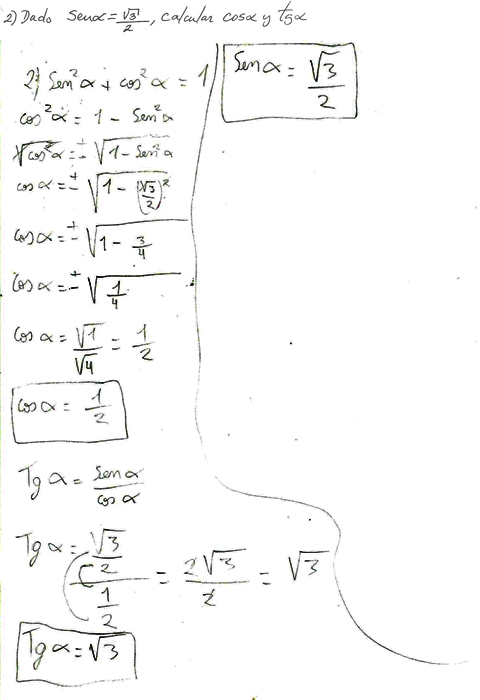 2) Dado senα = √3/2, calcular cosα y tgα
2) Sen²α + cos²α = 1
cos²α = 1 - Sen²α
√cos²α = ± √1 - Sen²α
cos α = ± √1 - (√3/2)²
cos α = ± √1 - 3/4
cos α = ± √1/4
cos α = √1/√4 = 1/2
cos α = 1/2
Tg α = Sen α/cos α
Tg α = √3/2 / 1/2 = 2√3/2 = √3
Tg α = √3
Sen α = √3/2